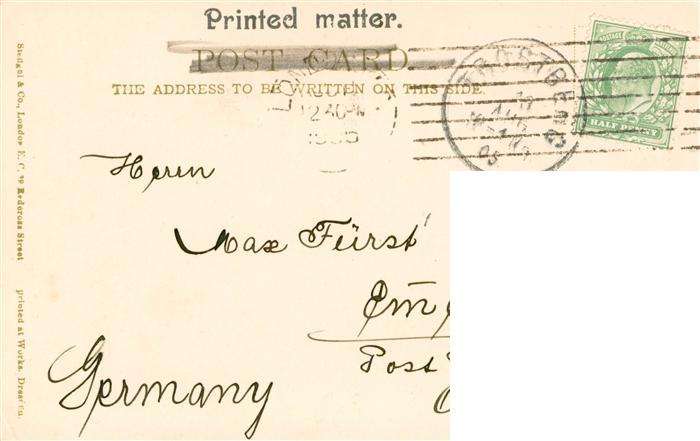 Printed matter.
POST CARD
THE ADDRESS TO BE WRITTEN ON THIS SIDE.
LONDON
12.40PM
POSTAGE
HALF PENNY
Herrn
Max Fürst
Post
Germany
Stengel & Co., London E. C. 39 Redcross Street
printed at Works, Dresden.